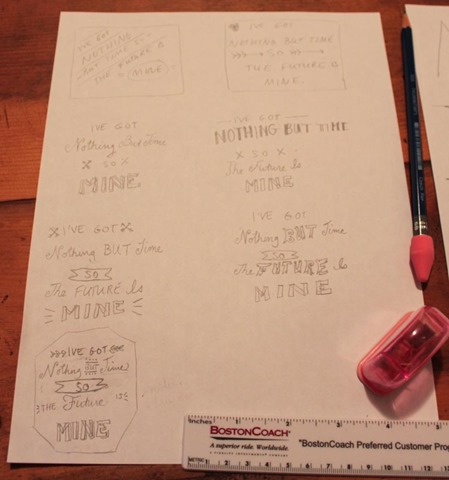 I'VE GOT
NOTHING
BUT TIME SO
THE FUTURE IS
MINE
I'VE GOT
NOTHING BUT TIME
SO
THE FUTURE IS
MINE.
I'VE GOT
Nothing But Time
SO
MINE
I'VE GOT
NOTHING BUT TIME
SO
The Future Is
MINE
I'VE GOT
Nothing BUT Time
SO
The FUTURE Is
MINE
I'VE GOT
Nothing BUT Time
SO
The FUTURE Is
MINE
I'VE GOT
Nothing BUT Time
SO
The Future IS
MINE
Inches 1 2 3 4 5
BOSTONCOACH
A superior ride. Worldwide.
A FIDELITY INVESTMENTS COMPANY
"BostonCoach Preferred Customer Prog
METRIC 1 2 3 4 5 6 7 8 9 10 11 12 13